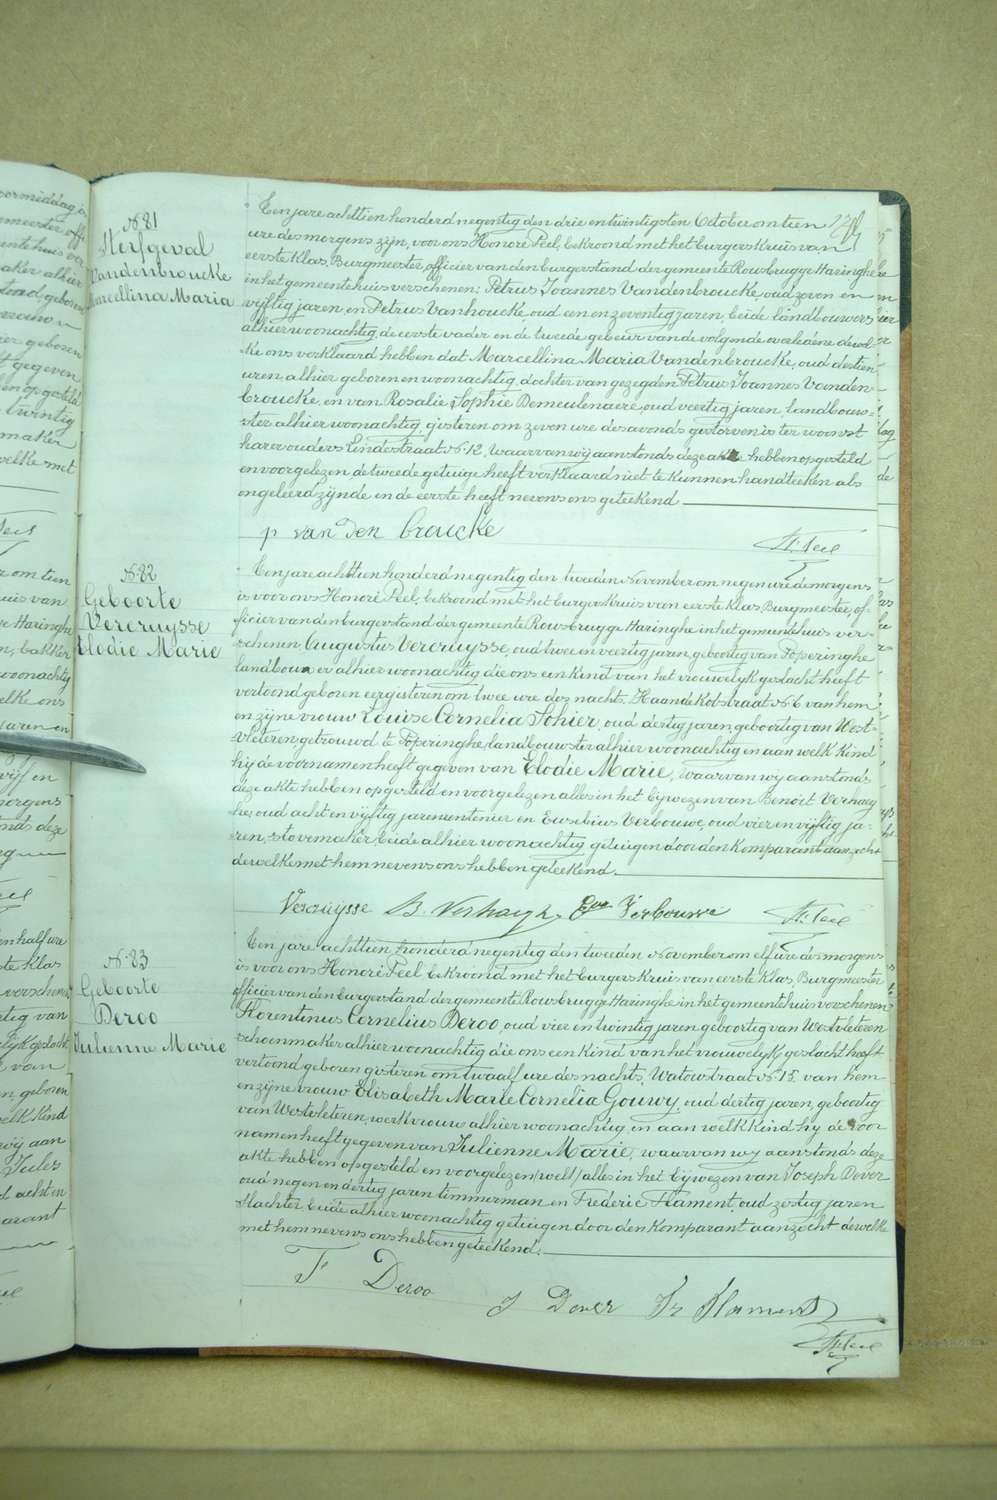 N. 81
Sterfgeval
Vandenbroucke
Marcellina Maria
Een jare achttien honderd negentig den drie en twintigsten October om tien
ure des morgens zijn, voor ons Honoré Peel, bekroond met het burgerskruis van
eerste klas, Burgmeester, officier van den burgerstand der gemeente Rousbrugge Haringhe
in het gemeentehuis verschenen: Petrus Joannes Vandenbroucke, oud zeven en
vijftig jaren, en Petrus Vanhoucke, oud een en zeventig jaren, beide landbouwers
alhier woonachtig, de eerste vader en de tweede gebeur van de volgende overledene dewel-
ke ons verklaard hebben dat Marcellina Maria Vandenbroucke, oud dertien
uren, alhier geboren en woonachtig, dochter van gezegden Petrus Joannes Vanden-
broucke, en van Rosalie Sophie Demeulenaere, oud veertig jaren, landbouw-
ster alhier woonachtig, gisteren om zeven ure des avonds gestorven is ter woonst
harer ouders Eindestraat N. 12, Waarvan wij aanstonds deze akte hebben opgesteld
en voorgelezen, de tweede getuige heeft verklaard niet te kunnen handteeken als
ongeleerd zijnde, en de eerste heeft nevens ons geteekend
p van den broucke
H. Peel
N. 82
Geboorte
Vercruysse
Elodie Marie
Een jare achttien honderd negentig den tweeden November om negen ure de morgens
is voor ons Honoré Peel, bekroond met het burgerskruis van eerste klas Burgmeester, of-
ficier van den burgerstand der gemeente Rousbrugge Haringhe in het gemeentehuis ver-
schenen, Augustus Vercruysse, oud twee en veertig jaren, geboortig van Poperinghe
landbouwer alhier woonachtig die ons een kind van het vrouwelijk geslacht heeft
vertoond geboren eergisteren om twee ure des nachts, Haandekotstraat N. 6 van hem
en zijne vrouw Louise Cornelia Sohier, oud dertig jaren, geboortig van West-
vleteren, getrouwd te Poperinghe, landbouwster alhier woonachtig en aan welk kind
hij de voornamen heeft gegeven van Elodie Marie, waarvan wij aanstonds
deze akte hebben opgesteld en voorgelezen alles in het bijwezen van Benoit Verhaeg
he, oud acht en vijftig jaren rentenier en Eusebius Verbouwe, oud vier en vijftig ja-
ren, stovemaker, beide alhier woonachtig getuigen door den komparant aanzocht
dewelke met hem nevens ons hebben geteekend.
Vercruysse B. Verhaeghe Verbouwe
H. Peel
N. 83
Geboorte
Deroo
Julienne Marie
Een jare achttien honderd negentig den tweeden November om elf ure des morgens
is voor ons Honoré Peel bekroond met het burgerskruis van eerste klas, Burgmeester
officier van den burgerstand der gemeente Rousbrugge Haringhe in het gemeentehuis verschenen
Florentinus Cornelius Deroo, oud vier en twintig jaren geboortig van Westvleteren
schoenmaker alhier woonachtig die ons een kind van het vrouwelijk geslacht heeft
vertoond geboren gisteren om twaalf ure des nachts, Watoustraat N. 15, van hem
en zijne vrouw Elisabeth Marie Cornelia Gouwy, oud dertig jaren, geboortig
van Westvleteren, werkvrouw alhier woonachtig, en aan welk kind hij de voor
namen heeft gegeven van Julienne Marie, waarvan wij aanstonds deze
akte hebben opgesteld en voorgelezen /welk/ alles in het bijwezen van Joseph Dever
oud negen en dertig jaren timmerman en Frederic Flament, oud zestig jaren
slachter, beide alhier woonachtig getuigen door den komparant aanzocht dewelke
met hem nevens ons hebben geteekend.
F Deroo
J Dever Fr Flament
H. Peel